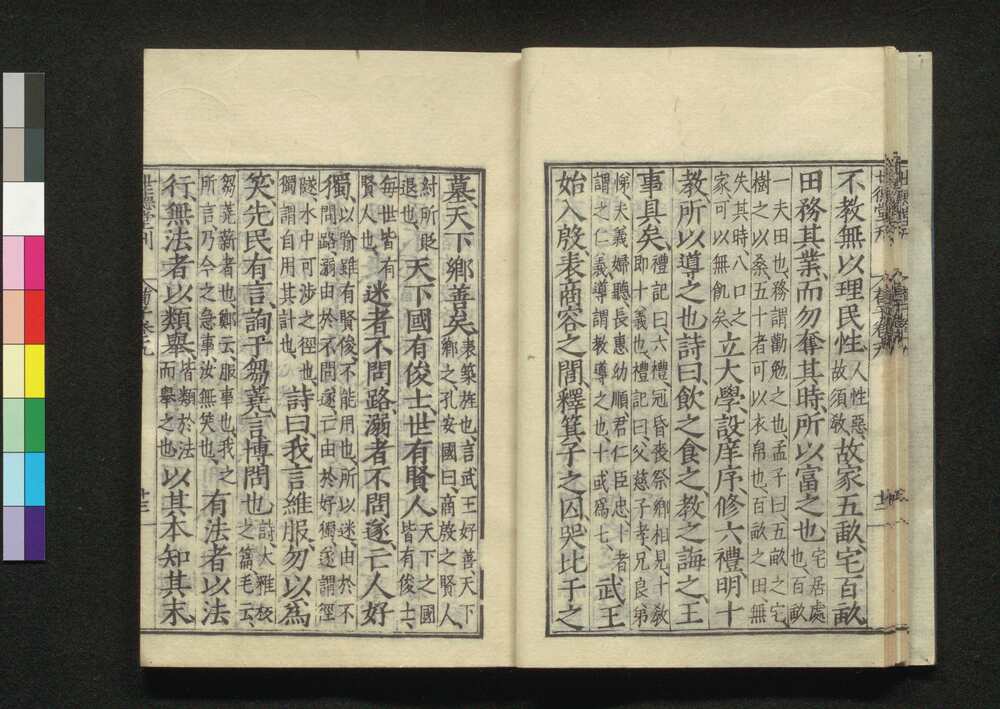 不教無以理民性
人性惡
故須敎
故家五畝宅百畝
田務其業、而勿奪其時、所以富之也
宅居處
也、百畝
一夫田也、務謂勸勉之也、孟子曰五畝之宅
樹之以桑、五十者可以衣帛也、百畝之田、無
失其時、八口之
家可以無飢矣
立大學、設庠序、修六禮、明十
教、所以導之也詩曰、飲之食之、教之誨之、王
事具矣、
禮記曰、六禮、冠昏喪祭鄉相見、十教
即十義也、禮記曰、父慈子孝、兄良弟
悌夫義婦聽、長惠幼順君仁臣忠、十者
謂之仁義、導謂教導之也、十或爲七、
武王
始入殷、表商容之閭、釋箕子之囚、哭比干之
墓、天下鄉善矣、
表築旌也、言武王好善、天下
鄉之、孔安國曰、商殷之賢人、
紂所貶
退也、
天下國有俊士世有賢人
天下之國
皆有俊士、
每世皆有
賢人也、
迷者不問路、溺者不問遂、亡人好
獨、
以喻雖有賢俊、不能用也、所以迷、由於不
問路、溺由於不問遂、亡由於好獨、遂謂徑
隧、水中可涉之徑也、
獨謂自用其計也、
詩曰、我言維服、勿以爲
笑、先民有言、詢于芻蕘、言博問也
詩大雅板
之篇毛云、
芻蕘薪者也、鄭云、服事也、我之
所言乃今之急事、汝無笑也、
有法者以法
行、無法者以類舉、
皆類於法
而舉之也、
以其本知其末、
世德堂刊
荀子卷九
廿三